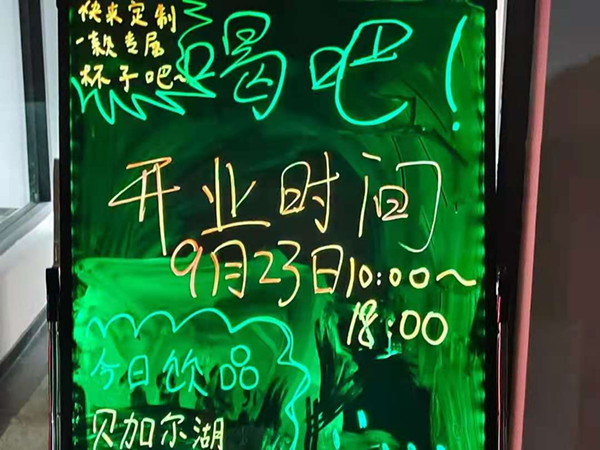 快来定制
一款专属
杯子吧~
喝吧！
开业时间
9月23日10:00~
18:00
今日饮品
贝加尔湖